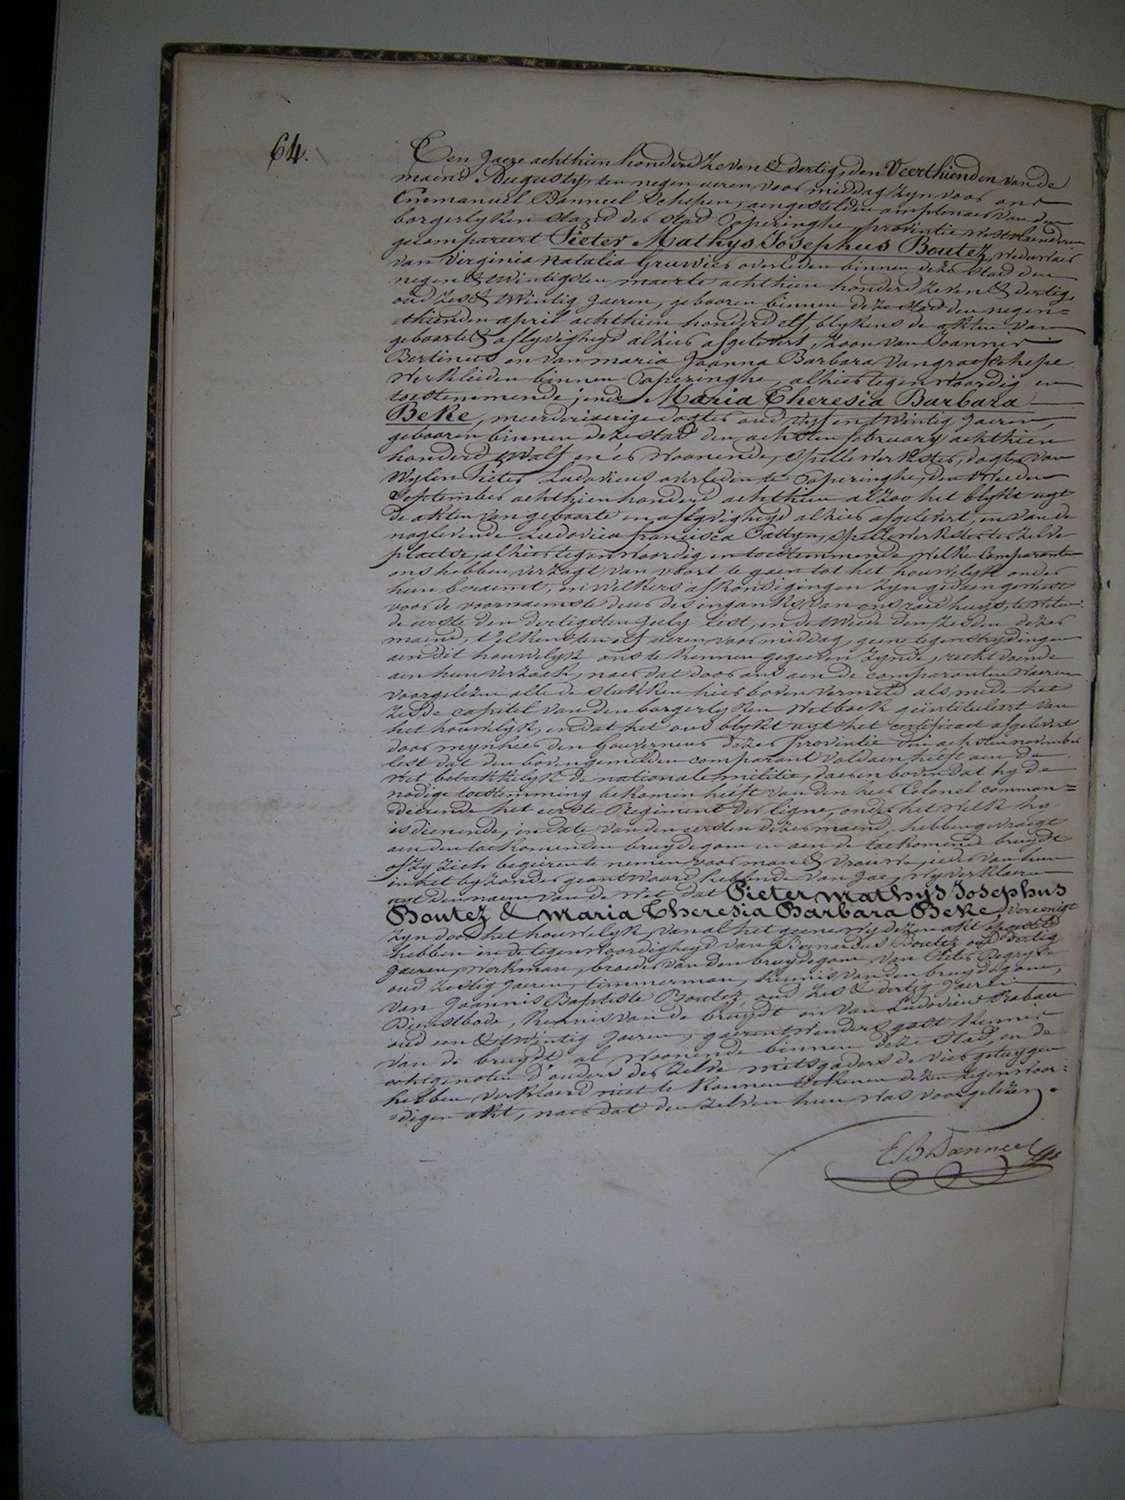 64.
Ten Jaere achthien honderd zeven & dertig, den Veerthienden van de
maend Augusty, ten negen ueren voor middag zyn voor ons
Emmanuel Banneel Schepen, aengestelden amptenaer van den
borgerlyken staet der stad Poperinghe, provintie Westvlaenderen
gecompareert Pieter Mathys Josephus Boutez, weduwaer
van Virginia Natalia Gruwier overleden binnen deze stad den
negen & twintigsten maerte achthien honderd zeven & dertig,
oud zes & twintig jaeren, gebooren binnen deze stad den negen=
thienden april achthien honderd elf, blykens de akten van
geboorte & aflyvigheyd alhier afgelevert, zoon van Joannes
Bertinus en van Maria Joanna Barbara Vangraefschepe
werklieden binnen Poperinghe, alhier tegenwoordig en
toestemmende; ende Maria Theresia Barbara
Beke, meerderjaerige dogter oud vyf en twintig jaeren,
gebooren binnen deze stad den achtsten february achthien
honderd twalf en er woonende, spellewerkster, dogter van
wylen Pieter Ludovicus overleden te Poperinghe, den tweeden
September achthien honderd achthien alzoo het blykt uyt
de akten van geboorte en aflyvigheyd alhier afgelevert, en van de
naglevende Ludovica Francisca Pattyn, spellewerkster ter zelve
plaetse, alhier tegenwoordig en toestemmende welke Comparanten
ons hebben verzogt van voort te gaen tot het houwelyk onder
hun beraemt, en welkers afkondigingen zyn gedaen geweest
voor de voornaemste deur des ingangs van ons raedhuys, te weten
de eerste den dertigsten july lest, en de tweede den zesden dezer
maend, telkens ten elf ueren voor middag, geene tegenstrydingen
aen dit houwelyk ons te kennen gegeven zynde, recht doende
aen hun verzoek, naer dat door ons aen de comparanten waeren
voorgelezen alle de stukken hier boven vermeld als mede het
zesde capitel van den borgerlyken wetboek geintituleert van
het houwelyk, en dat het ons blykt uyt het certificaet afgelevert
door mynheer den Gouverneur dezer provintie den achsten november
lest dat den bovengemelden comparant voldaen heeft aen de
wet betrekkelyk de nationale militie, daerenboven dat hy de
nodige toestemming bekomen heeft van den heer Colonel comman=
deerende het eerste Regiment der ligne, onder het welk hy
is dienende, in date van den eersten dezer maend, hebben gevraegt
aen den toekomenden bruydegom en aen de toekomende bruydt
of zy zich begeeren te nemen voor man & vrouwe, ieder van hun
en het byzonder geantwoord hebbende van Jae, wy verklaeren
uyt den naem van de wet dat Pieter Mathys Josephus
Boutez & Maria Theresia Barbara Beke, vereenigt
zyn door het houwelyk, van al het geene wy dezen akt
hebben in de tegenwoordigheyd van Bernardus Boutez oud dertig
jaeren, werkman, broeder van den bruydegom, van Pieter Degryse
oud zestig jaeren, timmerman, kennis van den bruydegom,
van Joannis Baptiste Boutez, oud zes & dertig jaeren
Dienstbode, kennis van de bruydt en van Ludovicus Rabau
oud een & twintig jaeren, gaerentwender, kennis
van de bruydt, al woonende binnen deze stad, en de
echtgenoten d'ouders der zelve mitsgaders de vier getuygen
hebben verklaerd niet te konnen teekenen dezen tegenwoor=
digen akt, naer dat den zelven hun was voorgelezen.
E. Banneel